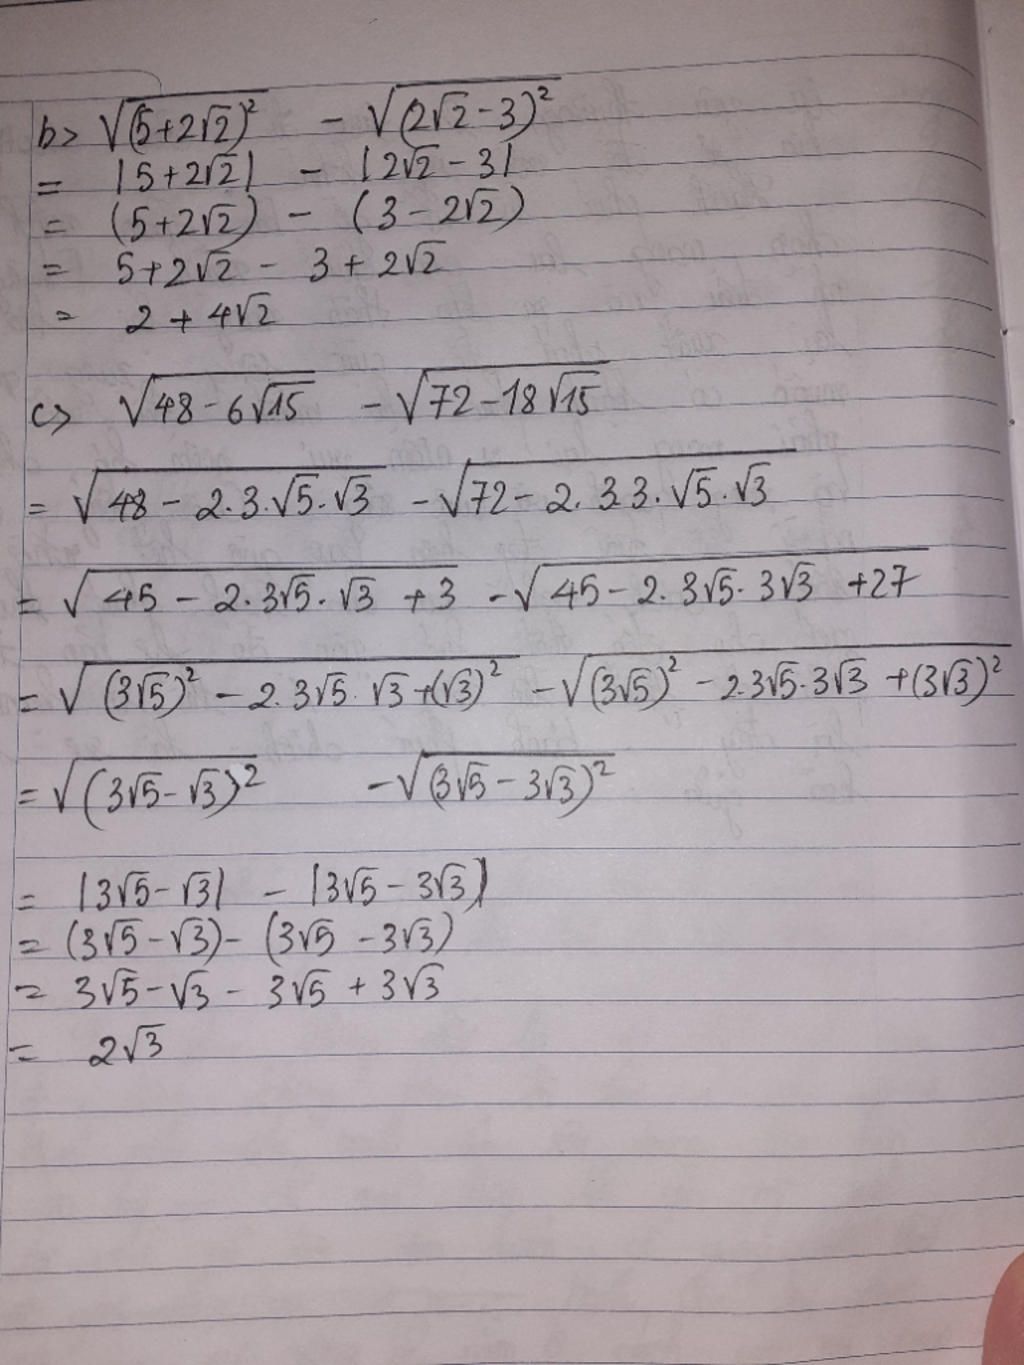 b> √(5+2√2)² - √(2√2-3)²
= |5+2√2| - |2√2-3|
= (5+2√2) - (3-2√2)
= 5+2√2 - 3+2√2
= 2+4√2
c> √48-6√15 - √72-18√15
= √48-2.3.√5.√3 - √72-2.3 3.√5.√3
= √45-2.3√5.√3+3 - √45-2.3√5.3√3+27
= √(3√5)²-2.3√5.√3+(√3)² - √(3√5)²-2.3√5.3√3+(3√3)²
= √(3√5-√3)² - √(3√5-3√3)²
= |3√5-√3| - |3√5-3√3|
= (3√5-√3)-(3√5-3√3)
= 3√5-√3-3√5+3√3
= 2√3